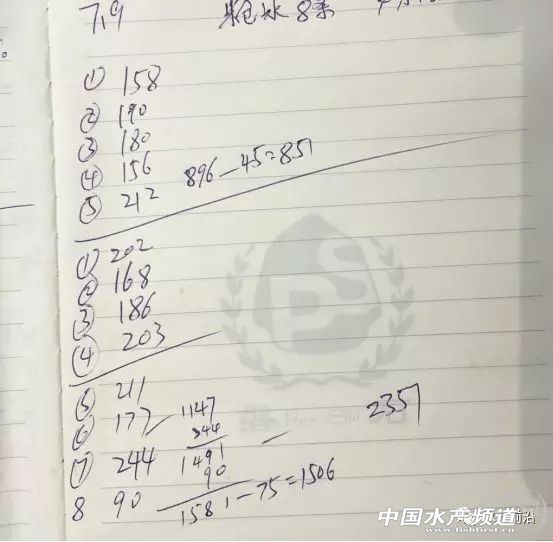 7.9
① 158
② 190
③ 180
④ 156 896-45=851
⑤ 212
① 202
② 168
③ 186
④ 203
⑤ 211
⑥ 177 1147
344
2357
⑦ 244 1491
90
8 90 1581-75=1506
中国水产频道
www.fishfirst.cn